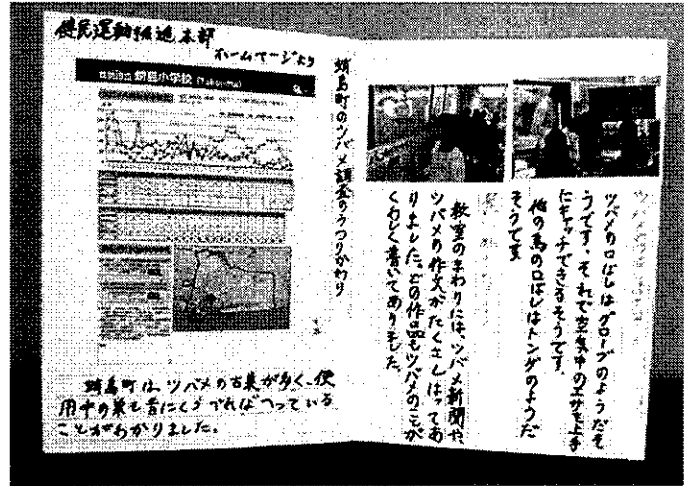 健民運動推進本部
ホームページより
蛸島小学校 (Takojima)
蛸島町のツバメ調査のうつりかわり
蛸島町は、ツバメの古巣が多く、使
用中の巣も昔にくらべればへっている
ことがわかりました。
ツバメの口ばしはグローブのようだそ
うです。それで空気中のエサを上手
にキャッチできるそうです。
他の鳥の口ばしはトングのようだ
そうです
教室のまわりには、ツバメ新聞や
ツバメの作文がたくさんはってあ
りました。どの作品もツバメのことが
くわしく書いてありました。